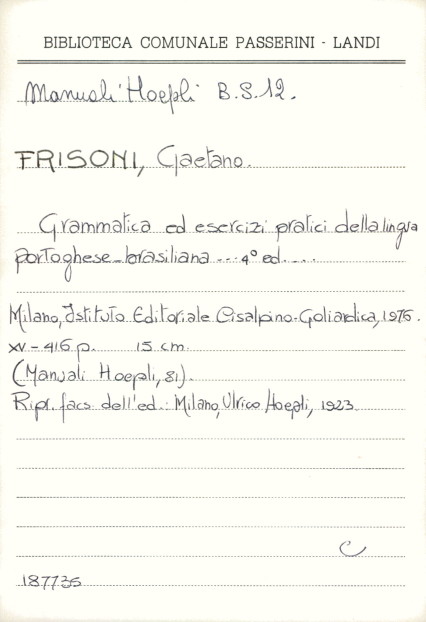 BIBLIOTECA COMUNALE PASSERINI - LANDI
Manuali Hoepli B.S.12.
FRISONI, Gaetano.
Grammatica ed esercizi pratici della lingua
portoghese-brasiliana ... 4° ed. ...
Milano, Istituto Editoriale Cisalpino-Goliardica, 1976.
xv - 416 p. 15 cm.
(Manuali Hoepli, 81).
Ripr. facs dell'ed.: Milano, Ulrico Hoepli, 1923.
C
187735